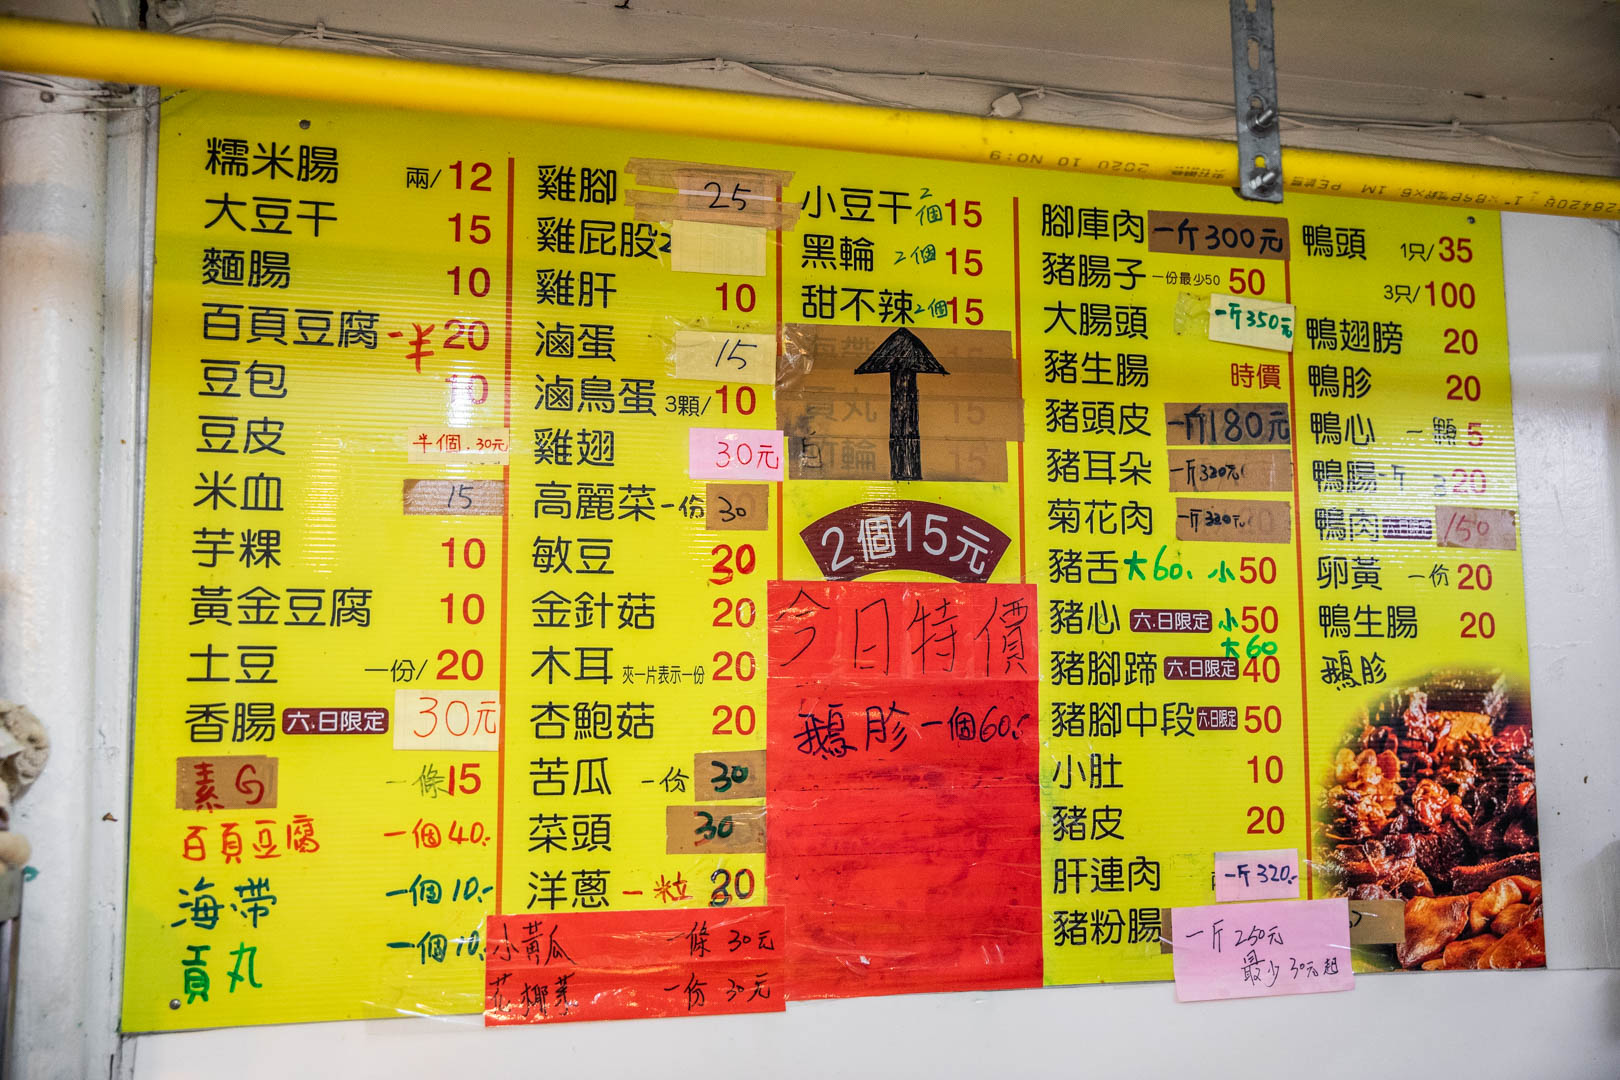 糯米腸 兩/12
大豆干 15
麵腸 10
百頁豆腐 一半 20
豆包 10
豆皮 半個.30元
米血 15
芋粿 10
黃金豆腐 10
土豆 一份/20
香腸 六.日限定 30元
素G 一條15
百頁豆腐 一個40.-
海帶 一個10.-
貢丸 一個10.-
雞腳 25
雞屁股2
雞肝 10
滷蛋 15
滷鳥蛋 3顆/10
雞翅 30元
高麗菜 一份 30
敏豆 30
金針菇 20
木耳 夾一片表示一份 20
杏鮑菇 20
苦瓜 一份 30
菜頭 30
洋蔥 一粒 30
小黃瓜 一條 30元
花椰菜 一份 30元
小豆干 2個15
黑輪 2個 15
甜不辣 2個15
2個15元
今日特價
鵝胗一個60.-
腳庫肉 一斤300元
豬腸子 一份最少50 50
大腸頭 一斤350元
豬生腸 時價
豬頭皮 一斤180元
豬耳朵 一斤320元
菊花肉 一斤320元
豬舌 大60. 小50
豬心 六.日限定 小50
大60
豬腳蹄 六.日限定 40
豬腳中段 六.日限定 50
小肚 10
豬皮 20
肝連肉 一斤320.-
豬粉腸 一斤250元
最少30元起
鴨頭 1只/35
3只/100
鴨翅膀 20
鴨胗 20
鴨心 一顆5
鴨腸 一斤 320
鴨肉 六.日限定 150
卵黃 一份20
鴨生腸 20
鵝胗
2020 10 NO:9